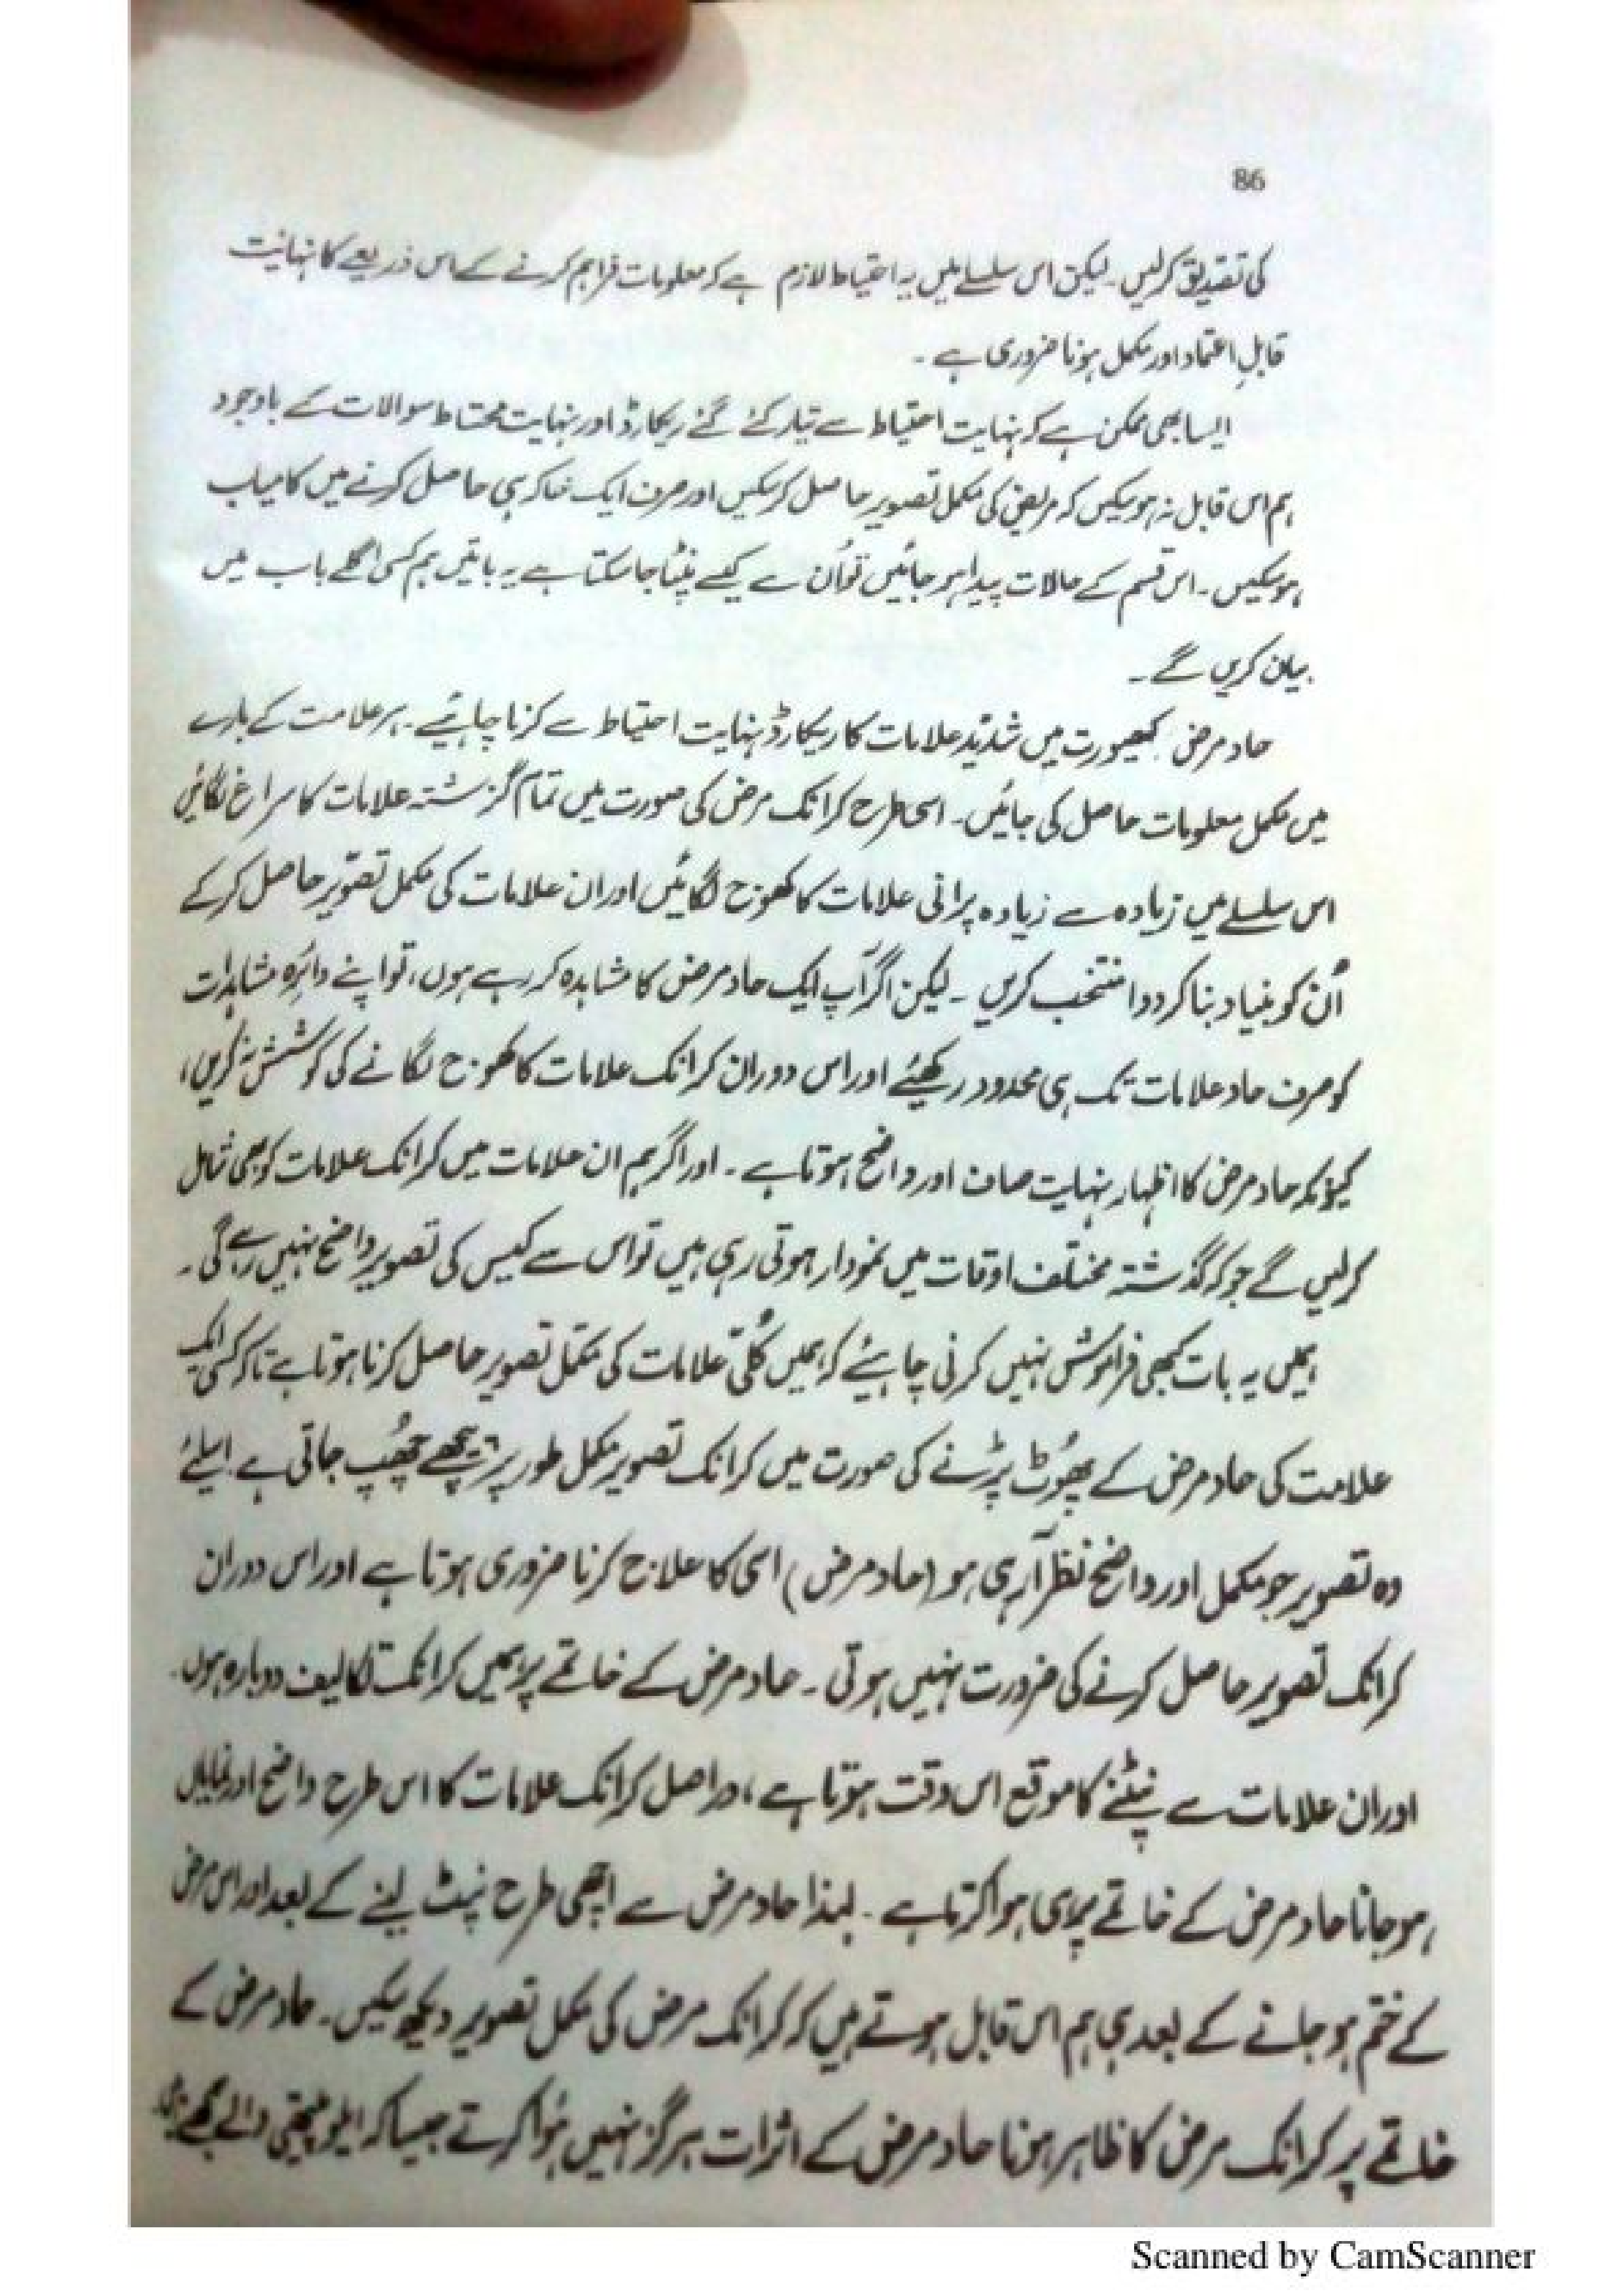 86
کی تصدیق کرلیں۔ لیکن اس سلسلے میں یہ احتیاط لازم ہے کہ معلومات فراہم کرنے کے اس ذریعے کا نہایت
قابلِ اعتماد اور مکمل ہونا ضروری ہے ۔
ایسا بھی ممکن ہے کہ نہایت احتیاط سے تیار کئے گئے ریکارڈ اور نہایت محتاط سوالات کے باوجود
ہم اس قابل نہ ہوسکیں کہ مریض کی مکمل تصویر حاصل کرسکیں اور صرف ایک خاکہ ہی حاصل کرنے میں کامیاب
ہوسکیں ۔ اس قسم کے حالات پیدا ہو جائیں تو اُن سے کیسے نپٹا جاسکتا ہے یہ باتیں ہم کسی اگلے باب میں
بیان کریں گے ۔
حاد مرض کیصورت میں شدید علامات کا ریکارڈ نہایت احتیاط سے کرنا چاہئیے ۔ ہر علامت کے بارے
میں مکمل معلومات حاصل کی جائیں ۔ اسی طرح کرانک مرض کی صورت میں تمام گزشتہ علامات کا سراغ لگائیں
اس سلسلے میں زیادہ سے زیادہ پرانی علامات کا کھوج لگائیں اور ان علامات کی مکمل تصویر حاصل کرکے
اُن کو بنیاد بنا کر دوا منتخب کریں ۔ لیکن اگر آپ ایک حاد مرض کا مشاہدہ کر رہے ہوں، تو اپنے دائرہ مشاہدات
کو صرف حاد علامات تک ہی محدود رکھئیے اور اس دوران کرانک علامات کا کھوج لگانے کی کوشش نہ کریں،
کیونکہ حاد مرض کا اظہار نہایت صاف اور واضح ہوتا ہے ۔ اور اگر ہم ان علامات میں کرانک علامات کو بھی شامل
کرلیں گے جو کہ گذشتہ مختلف اوقات میں نمودار ہوتی رہی ہیں تو اس سے کیس کی تصویر واضح نہیں رہے گی ۔
ہمیں یہ بات کبھی فراموش نہیں کرنی چاہئیے کہ ہمیں کُلّی علامات کی مکمل تصویر حاصل کرنا ہوتا ہے تاکہ کسی ایک
علامت کی حاد مرض کے پھُوٹ پڑنے کی صورت میں کرانک تصویر مکمل طور پر پیچھے چھُپ جاتی ہے اسلئے
وہ تصویر جو مکمل اور واضح نظر آرہی ہو (حاد مرض) اسی کا علاج کرنا ضروری ہوتا ہے اور اس دوران
کرانک تصویر حاصل کرنے کی ضرورت نہیں ہوتی ۔ حاد مرض کے خاتمے پر ہمیں کرانک تکالیف دوبارہ ہوں
اور ان علامات سے نپٹنے کا موقع اس وقت ہوتا ہے، دراصل کرانک علامات کا اس طرح واضح اور نمایاں
ہو جانا حاد مرض کے خاتمے پر ہی ہوا کرتا ہے ۔ لہذا حاد مرض سے اچھی طرح نپٹ لینے کے بعد اور اس مرض
کے ختم ہو جانے کے بعد ہی ہم اس قابل ہوتے ہیں کہ کرانک مرض کی مکمل تصویر دیکھ سکیں ۔ حاد مرض کے
خاتمے پر کرانک مرض کا ظاہر ہونا حاد مرض کے اثرات ہرگز نہیں ہُوا کرتے جیسا کہ ایلوپیتھی والے سمجھتے ہیں۔
Scanned by CamScanner